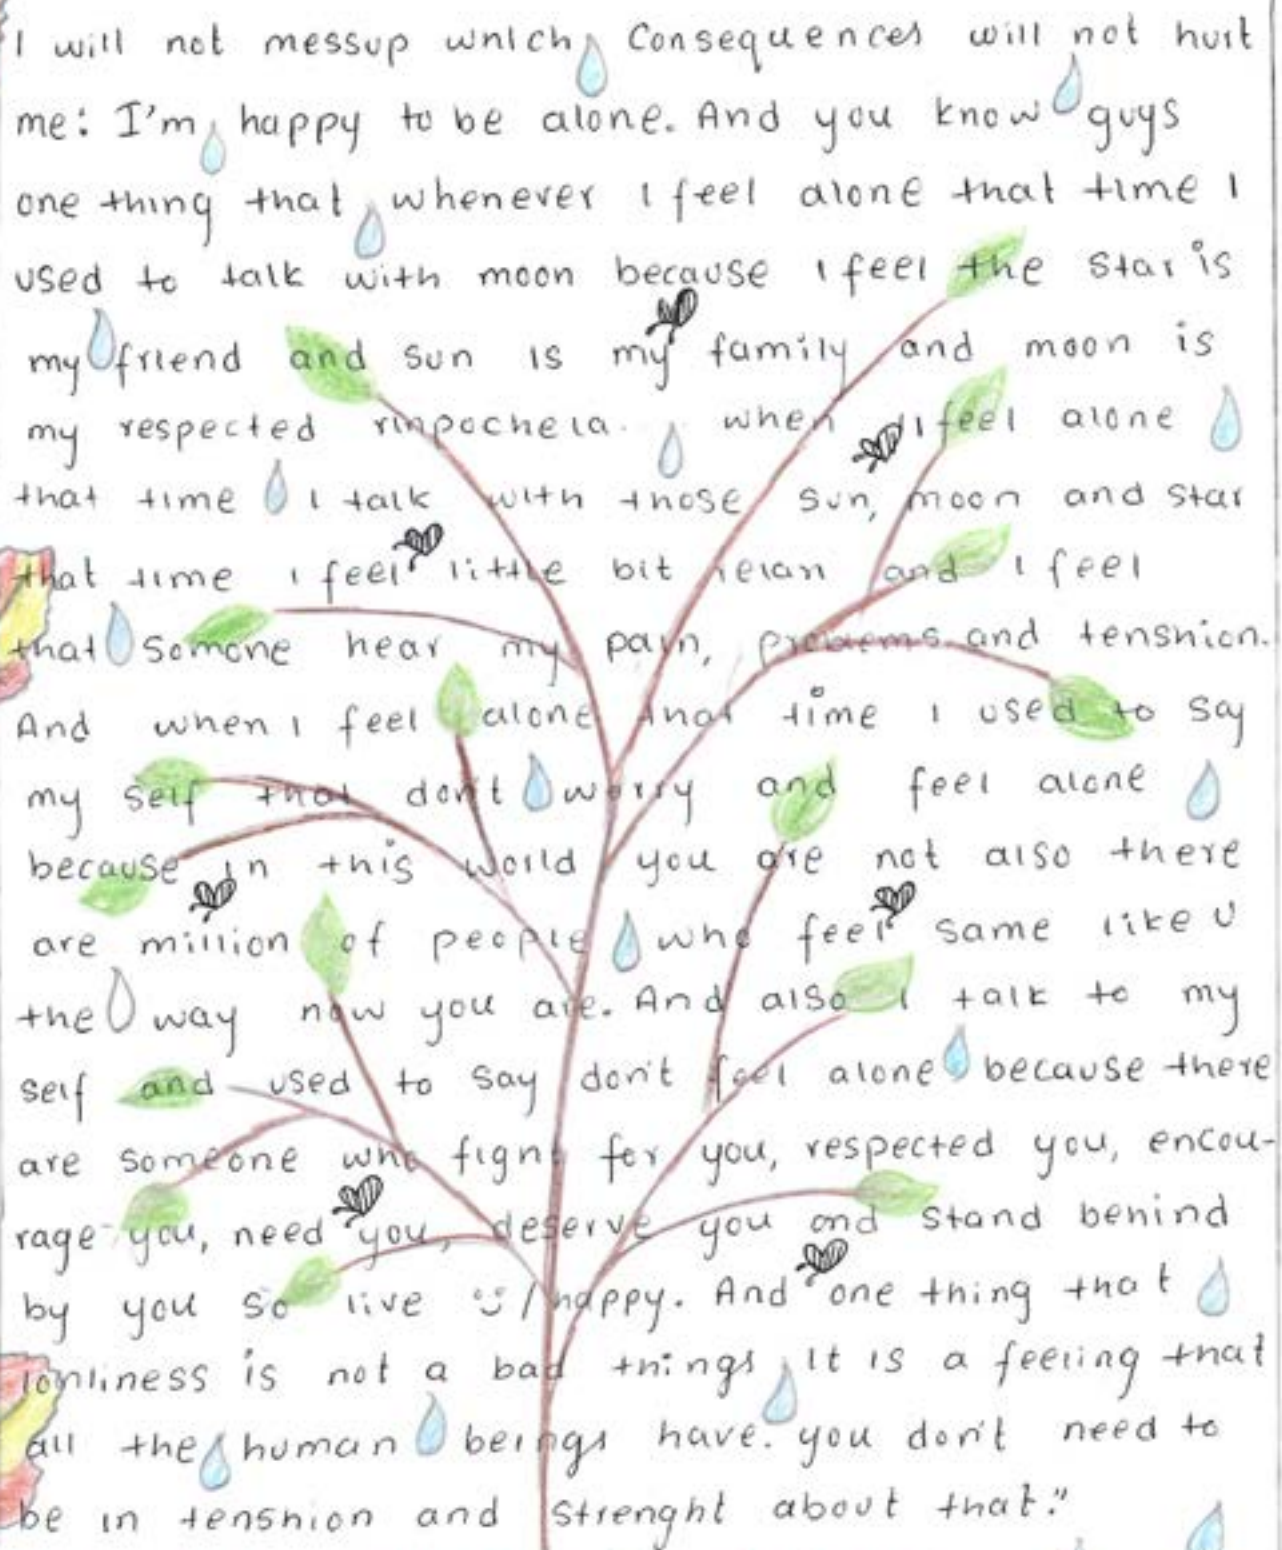 I will not messup which Consequences will not hurt
me: I'm happy to be alone. And you know guys
one thing that whenever I feel alone that time I
used to talk with moon because I feel the star is
my friend and sun is my family and moon is
my respected rinpochela. when I feel alone
that time I talk with those sun, moon and star
that time I feel little bit relax and I feel
that Somone hear my pain, problems and tenshion.
And when I feel alone that time I used to say
my self that don't worry and feel alone
because in this world you are not also there
are million of people who feel same like U
the way now you are. And also I talk to my
self and used to say don't feel alone because there
are someone who fight for you, respected you, encou-
rage you, need you, deserve you and stand behind
by you so live / happy. And one thing that
lonliness is not a bad things It is a feeling that
all the human beings have. you don't need to
be in tenshion and strenght about that."